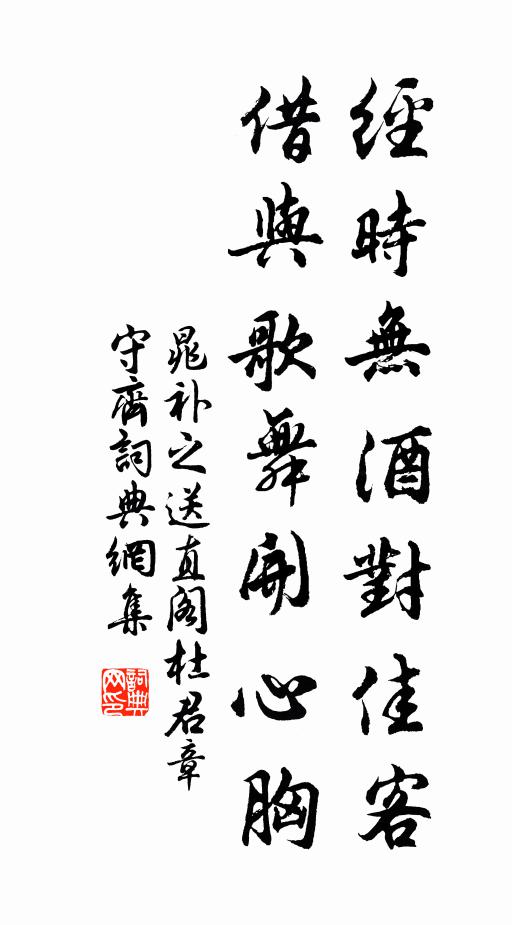 經時無酒對佳客
借與歌舞開心胸
晁补之送直阁杜君章
守齊詞典網集
詞典网印